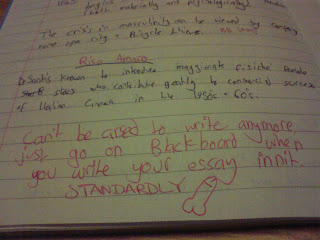 Italy materially and psychologically
The crisis in masculinity can be viewed by comparing
rome open city + Bicycle thieve
Riso Amaro
De Santis known to introduce maggiorate fisiche female
stars who contribute greatly to commercial success
of Italian Cinema in the 1950s + 60's.
Can't be arsed to write anymore,
just go on Blackboard when
you write your essay innit.
STANDARDLY